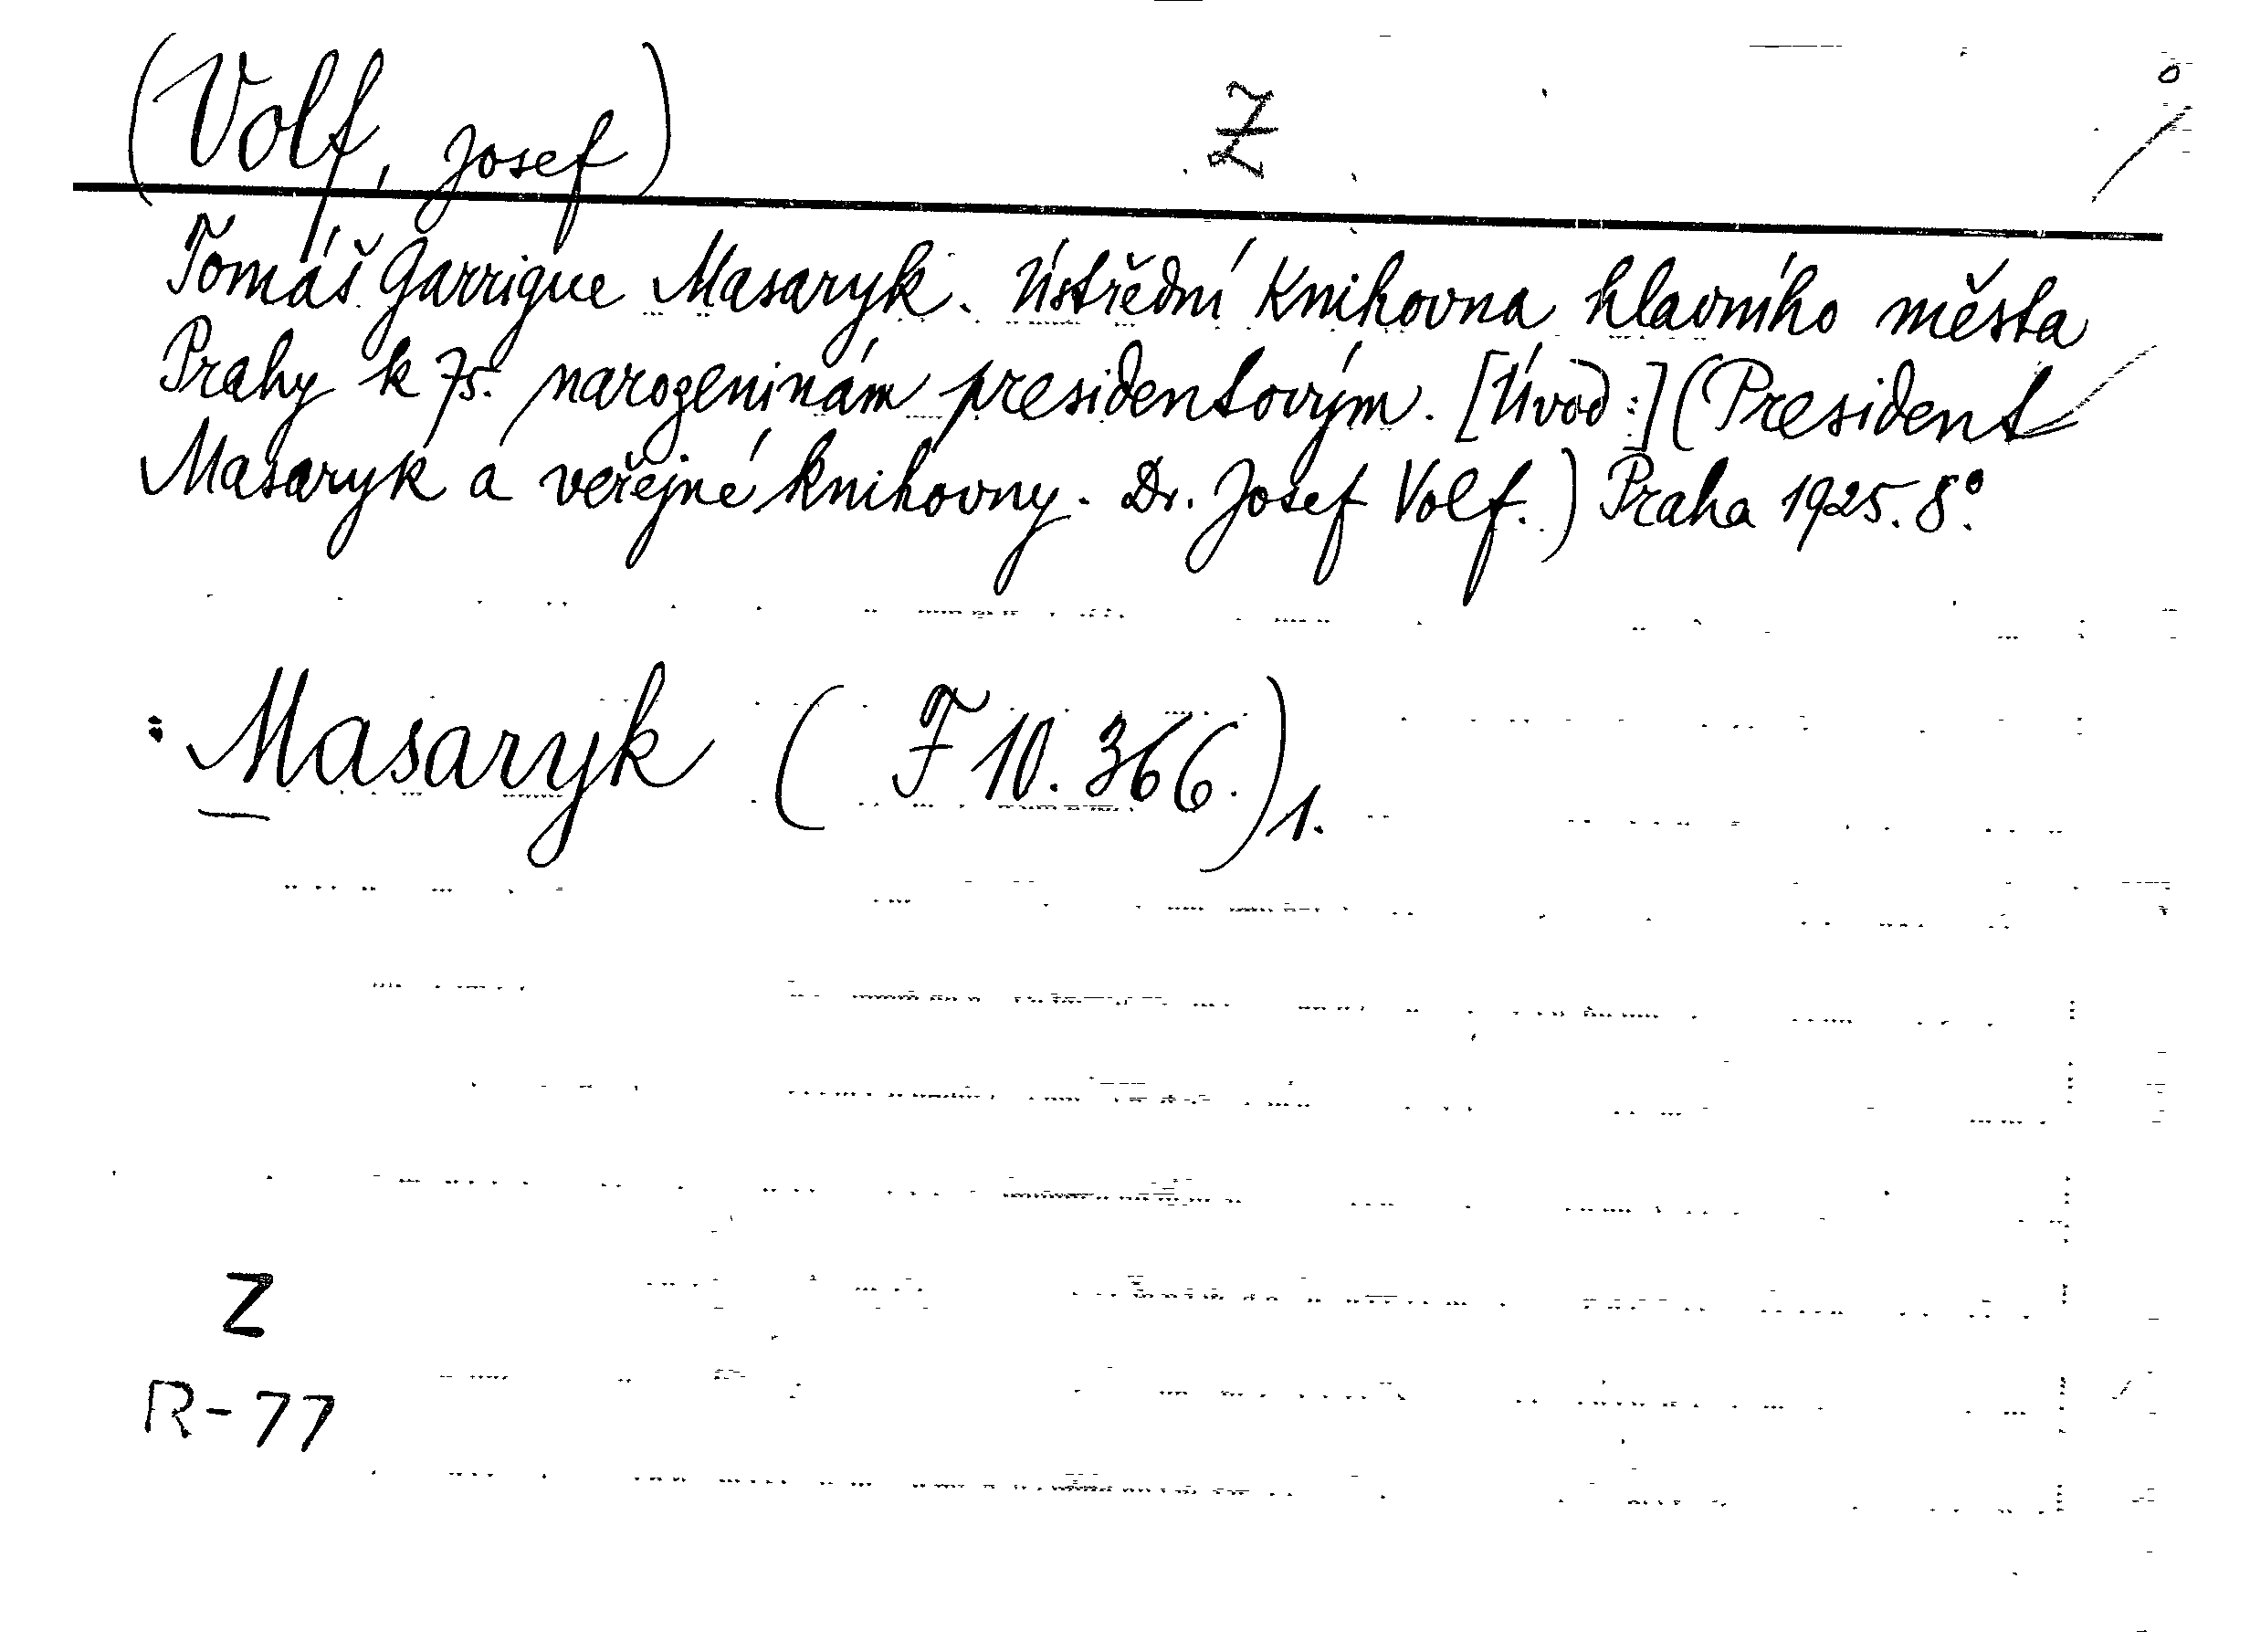 (Volf, Josef) Z
Tomáš Garrigue Masaryk. Ústřední Knihovna hlavního města
Prahy k 75. narozeninám presidentovým. [Úvod:] (President
Masaryk a veřejné knihovny. Dr. Josef Volf.) Praha 1925. 8°.
: Masaryk (F 10.366.) 1.
Z
R-77